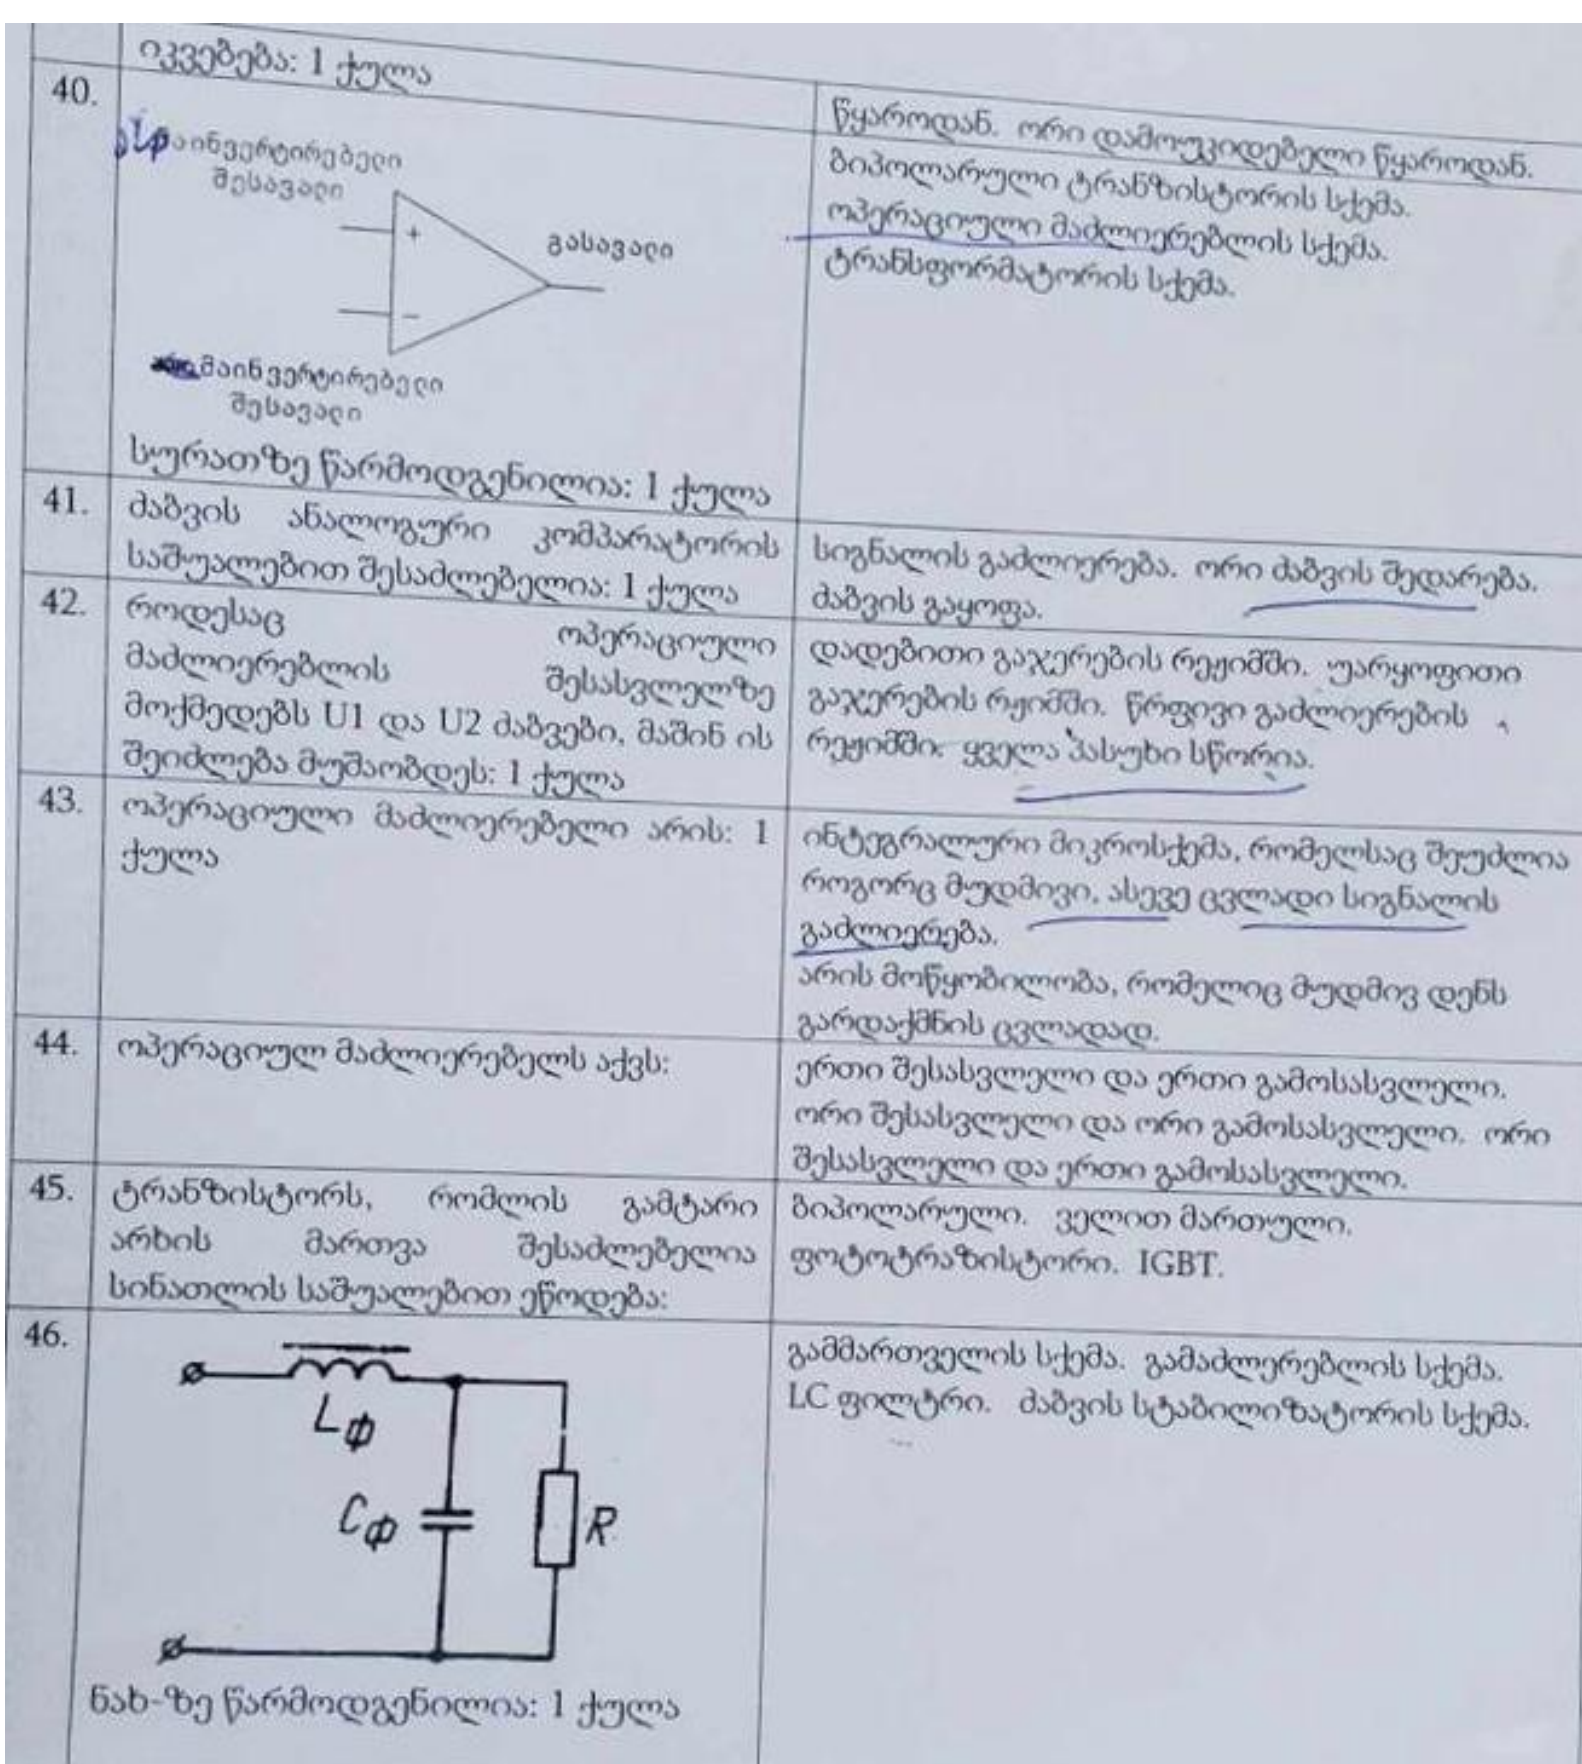 იკვებება: 1 ქულა
წყაროდან. ორი დამოუკიდებელი წყაროდან.
40.
არა ინვერტირებელი
შესავალი
+
გასავალი
−
მაინვერტირებელი
შესავალი
სურათზე წარმოდგენილია: 1 ქულა
ბიპოლარული ტრანზისტორის სქემა.
ოპერაციული მაძლიერებლის სქემა.
ტრანსფორმატორის სქემა.
41.
ძაბვის ანალოგური კომპარატორის
საშუალებით შესაძლებელია: 1 ქულა
სიგნალის გაძლიერება. ორი ძაბვის შედარება.
ძაბვის გაყოფა.
42.
როდესაც ოპერაციული
მაძლიერებლის შესასვლელზე
მოქმედებს U1 და U2 ძაბვები, მაშინ ის
შეიძლება მუშაობდეს: 1 ქულა
დადებითი გაჯერების რეჟიმში. უარყოფითი
გაჯერების რჟიმში. წრფივი გაძლიერების
რეჟიმში. ყველა პასუხი სწორია.
43.
ოპერაციული მაძლიერებელი არის: 1
ქულა
ინტეგრალური მიკროსქემა, რომელსაც შეუძლია
როგორც მუდმივი, ასევე ცვლადი სიგნალის
გაძლიერება.
არის მოწყობილობა, რომელიც მუდმივ დენს
გარდაქმნის ცვლადად.
44.
ოპერაციულ მაძლიერებელს აქვს:
ერთი შესასვლელი და ერთი გამოსასვლელი.
ორი შესასვლელი და ორი გამოსასვლელი. ორი
შესასვლელი და ერთი გამოსასვლელი.
45.
ტრანზისტორს, რომლის გამტარი
არხის მართვა შესაძლებელია
სინათლის საშუალებით ეწოდება:
ბიპოლარული. ველით მართული.
ფოტოტრაზისტორი. IGBT.
46.
LФ
CФ
R
ნახ-ზე წარმოდგენილია: 1 ქულა
გამმართველის სქემა. გამაძლერებლის სქემა.
LC ფილტრი. ძაბვის სტაბილიზატორის სქემა.